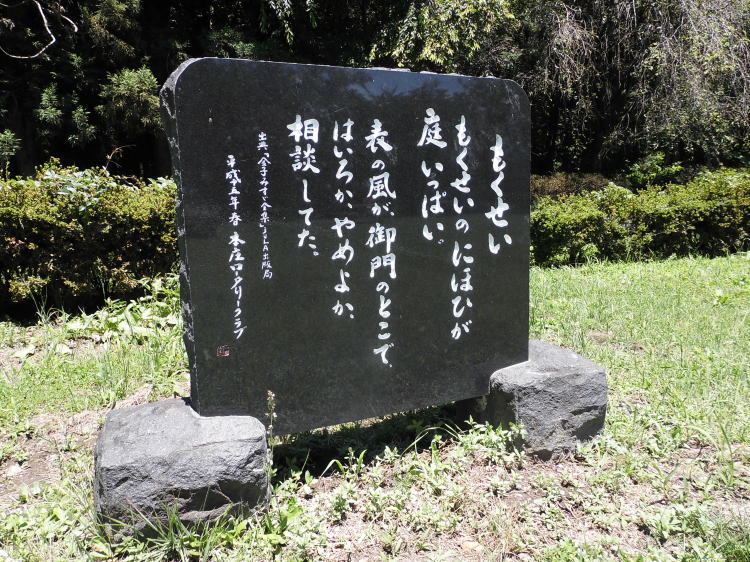 もくせい
もくせいのにほひが
庭いっぱい。
表の風が、御門のとこで、
はいろか、やめよか、
相談してた。
出典、「金子みすゞ全集」JULA出版局
平成十五年 春 本庄ロータリークラブ